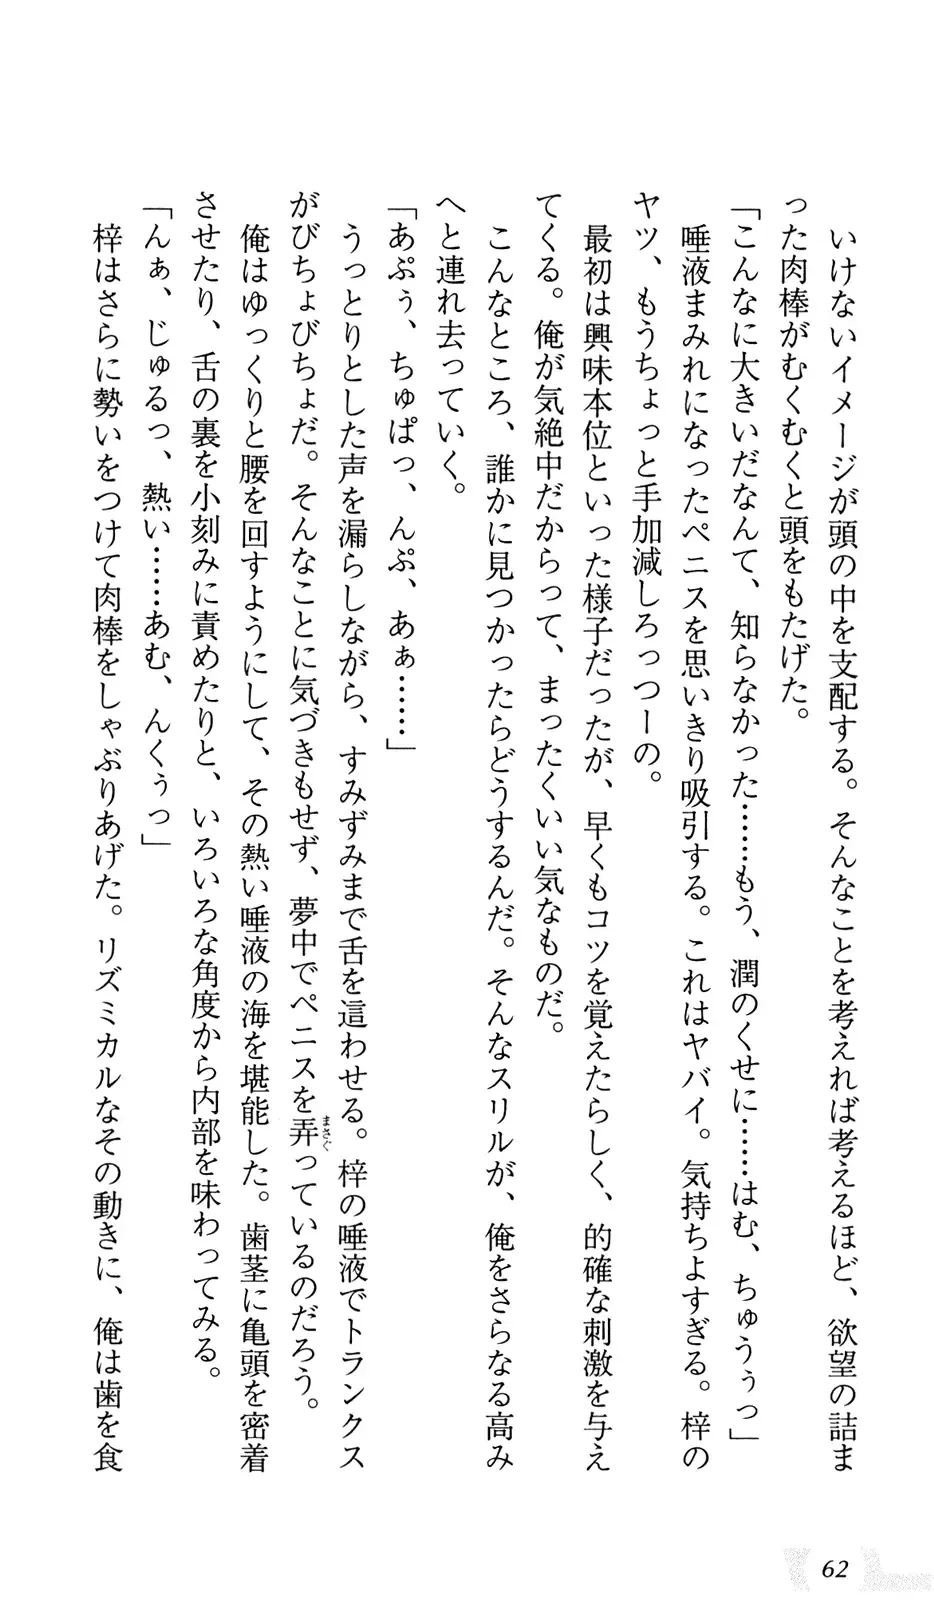 いけないイメージが頭の中を支配する。そんなことを考えれば考えるほど、欲望の詰ま
った肉棒がむくむくと頭をもたげた。
「こんなに大きいだなんて、知らなかった……もう、潤のくせに……はむ、ちゅうぅっ」
唾液まみれになったペニスを思いきり吸引する。これはヤバイ。気持ちよすぎる。梓の
ヤツ、もうちょっと手加減しろっつーの。
最初は興味本位といった様子だったが、早くもコツを覚えたらしく、的確な刺激を与え
てくる。俺が気絶中だからって、まったくいい気なものだ。
こんなところ、誰かに見つかったらどうするんだ。そんなスリルが、俺をさらなる高み
へと連れ去っていく。
「あぷぅ、ちゅぱっ、んぷ、あぁ……」
うっとりとした声を漏らしながら、すみずみまで舌を這わせる。梓の唾液でトランクス
がびちょびちょだ。そんなことに気づきもせず、夢中でペニスを弄っているのだろう。
まさぐ
俺はゆっくりと腰を回すようにして、その熱い唾液の海を堪能した。歯茎に亀頭を密着
させたり、舌の裏を小刻みに責めたりと、いろいろな角度から内部を味わってみる。
「んぁ、じゅるっ、熱い……あむ、んくぅっ」
梓はさらに勢いをつけて肉棒をしゃぶりあげた。リズミカルなその動きに、俺は歯を食
62